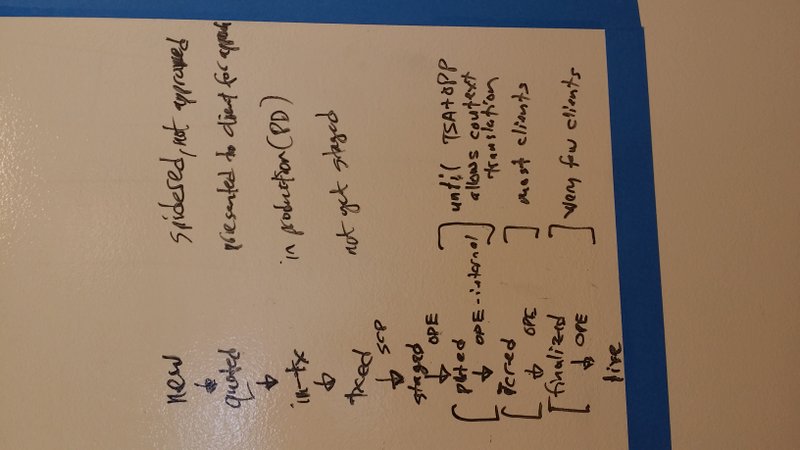 new spidered, not approved
↓
quoted presented to client for approval
↓
in-tx in production (PD)
↓
txed not yet staged
↓ SCP
staged
↓ OPE
[ ] until TSA + OPP
allows context
translation
↓ OPE-internal
[icred ] most clients
↓ OPE
[finalized ] very few clients
↓ OPE
live